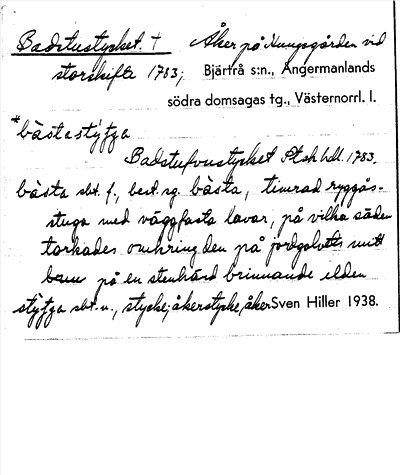 Badstustycket. † Åker på Kungsgården vid
storskifte 1783; Bjärtrå s:n., Ångermanlands
södra domsagas tg., Västernorrl. l.
*båstastýfga
Badstufvustycket Stsk hdl. 1783.
båsta sbt. f., best. sg. båsta, timrad ryggås-
stuga med väggfasta lavar, på vilka säden
torkades omkring den på jordgolvets mitt
på en stenhärd brinnande elden
stýfga sbt. n., stycke, åkerstycke, åker Sven Hiller 1938.